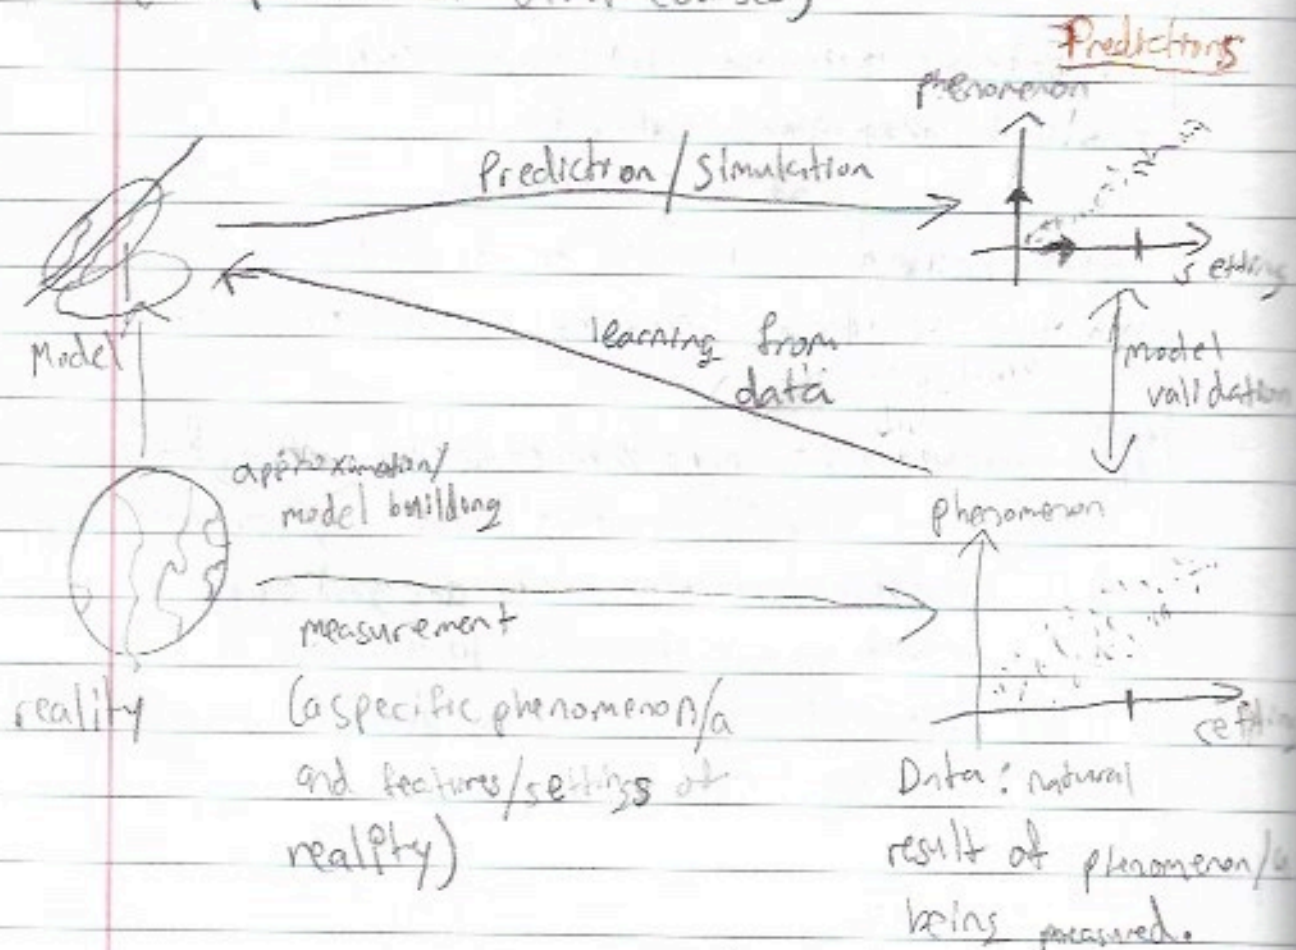 Predictions
phenomenon
Prediction/Simulation
setting
Model
learning from
data
model
validation
approximation/
model building
phenomenon
measurement
reality
(a specific phenomenon/a
and features/settings of
reality)
setting
Data: natural
result of phenomenon/a
being measured.